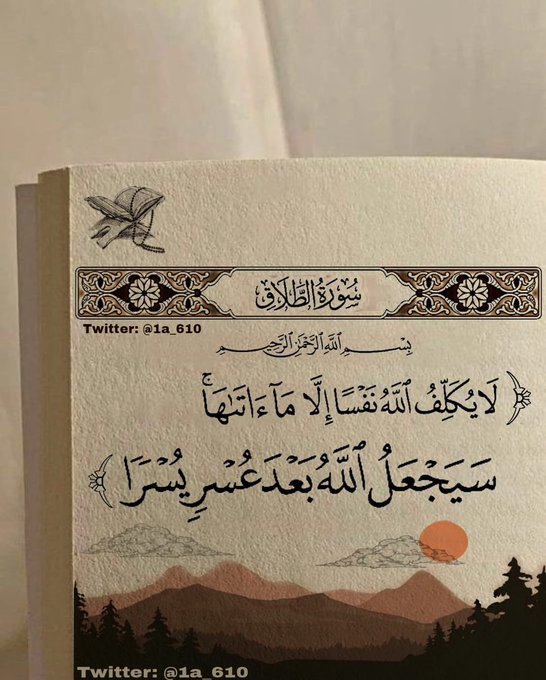 سُورَةُ الطَّلَاقِ
Twitter: @1a_610
بِسْمِ اللَّهِ الرَّحْمَٰنِ الرَّحِيمِ
﴿لَا يُكَلِّفُ ٱللَّهُ نَفْسًا إِلَّا مَآ ءَاتَىٰهَاۚ
سَيَجْعَلُ ٱللَّهُ بَعْدَ عُسْرٍ يُسْرًا﴾
Twitter: @1a_610